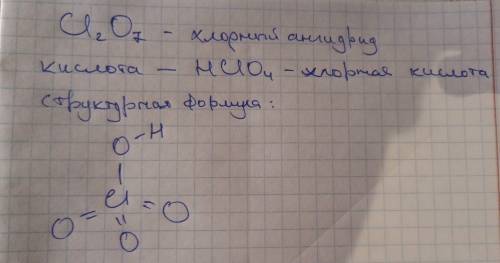 Cl₂O₇ - хлорный ангидрид
кислота — HClO₄ - хлорная кислота
структурная формула:
O-H
|
Cl
O = = O
"
O